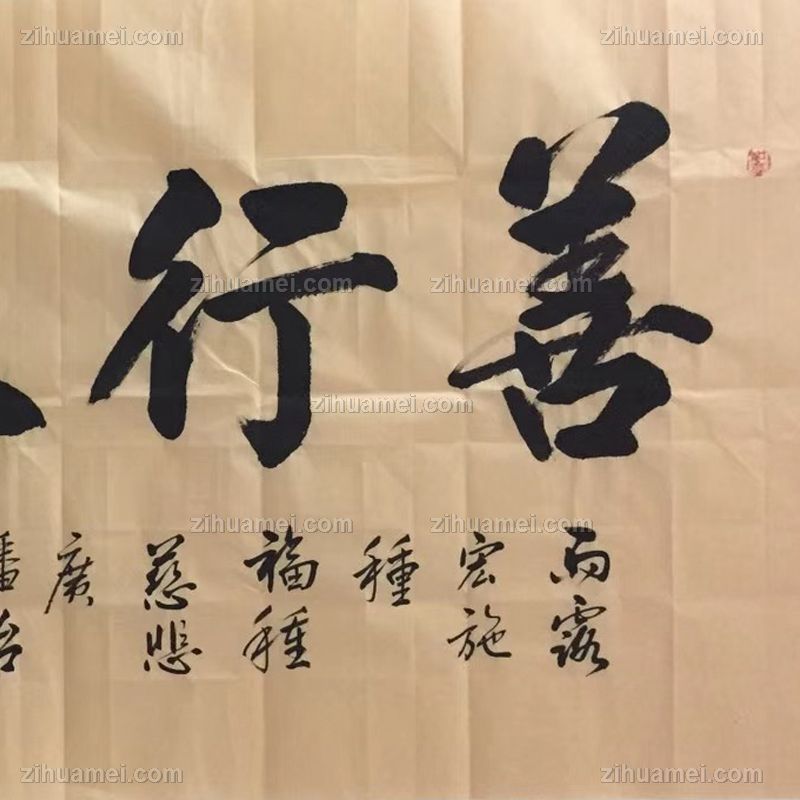 zihuamei.com zihuamei.com zihuamei.com
善行
zihuamei.com zihuamei.com
zihuamei.com
zihuamei.com zihuamei.com
雨露
宏施
種
福種
慈悲
廣
zihuamei.com zihuamei.com zihuamei.com